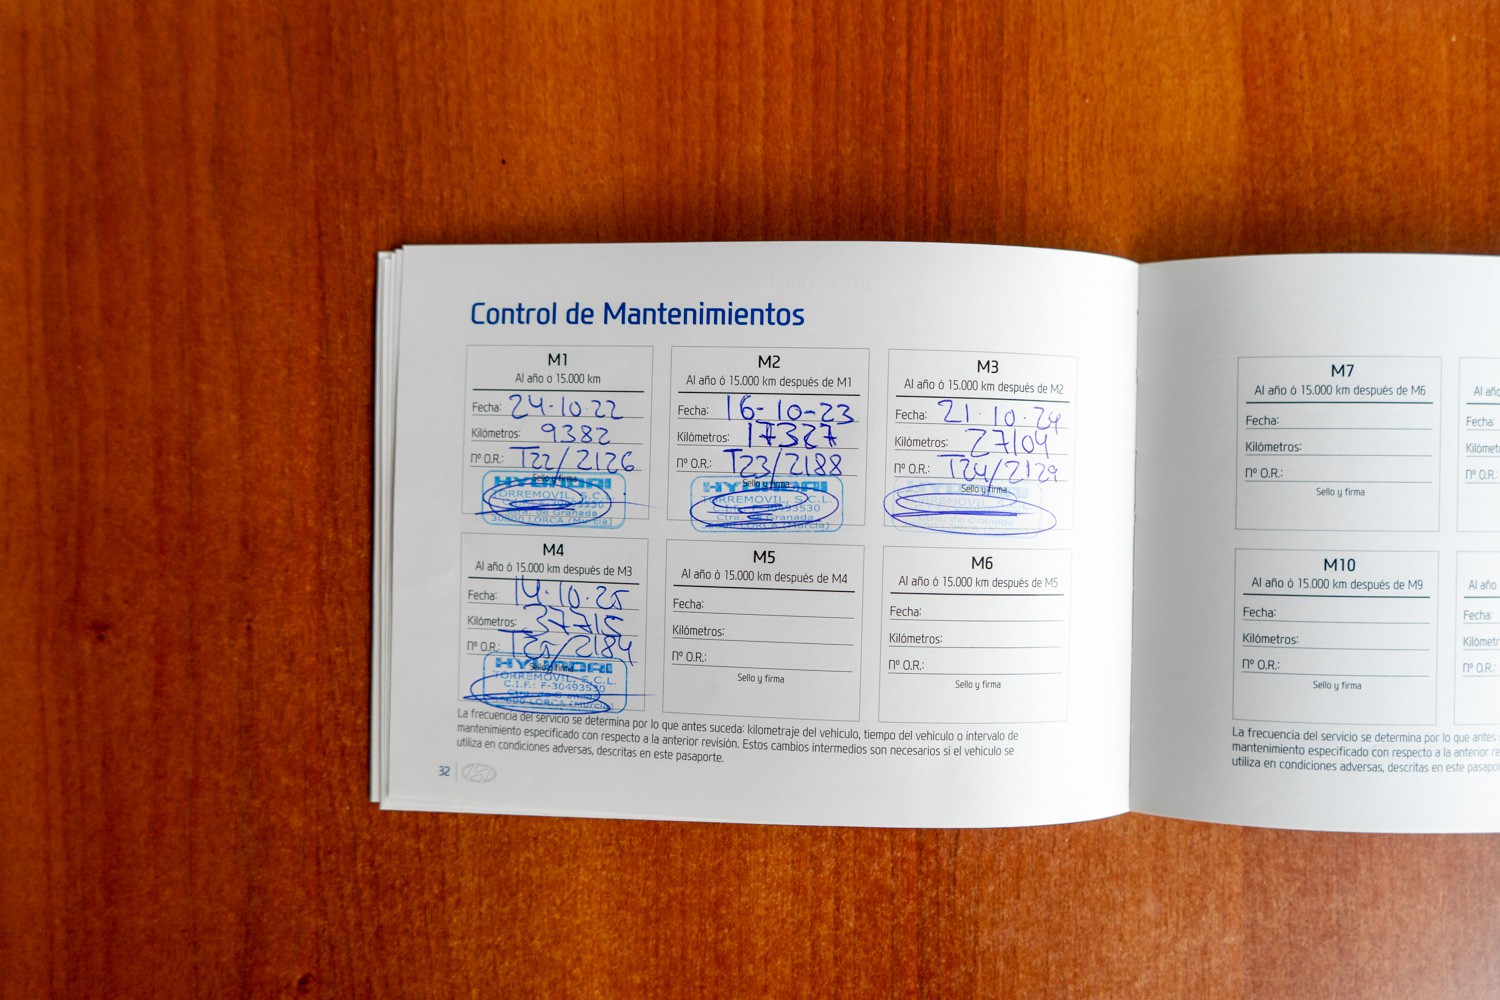 Control de Mantenimientos
M1
Al año o 15.000 km
Fecha: 24-10-22
Kilómetros: 9382
nº O.R.: T22/2126
Sello y firma
HYUNDAI
TORREMOVIL, S.C.L.
Ctra. de Granada
30800 LORCA (Murcia)
M2
Al año ó 15.000 km después de M1
Fecha: 16-10-23
Kilómetros: 17327
nº O.R.: T23/2188
Sello y firma
HYUNDAI
TORREMOVIL, S.C.L.
Ctra. de Granada
LORCA (Murcia)
M3
Al año ó 15.000 km después de M2
Fecha: 21.10.24
Kilómetros: 27104
nº O.R.: T24/2129
Sello y firma
TORREMOVIL,
Ctra. de Granada
M4
Al año ó 15.000 km después de M3
Fecha: 14.10.25
Kilómetros: 37715
nº O.R.: T25/2184
Sello y firma
HYUNDAI
TORREMOVIL, S.C.L.
C.I.F.: F-30493530
LORCA (Murcia)
M5
Al año ó 15.000 km después de M4
Fecha:
Kilómetros:
nº O.R.:
Sello y firma
M6
Al año ó 15.000 km después de M5
Fecha:
Kilómetros:
nº O.R.:
Sello y firma
La frecuencia del servicio se determina por lo que antes suceda: kilometraje del vehículo, tiempo del vehículo o intervalo de
mantenimiento especificado con respecto a la anterior revisión. Estos cambios intermedios son necesarios si el vehículo se
utiliza en condiciones adversas, descritas en este pasaporte.
32
M7
Al año ó 15.000 km después de M6
Fecha:
Kilómetros:
nº O.R.:
Sello y firma
Al año
Fecha:
nº O.R.:
M10
Al año ó 15.000 km después de M9
Fecha:
Kilómetros:
nº O.R.:
Sello y firma
Al año
Fecha:
nº O.R.:
La frecuencia del servicio se determina por lo que antes
mantenimiento especificado con respecto a la anterior
utiliza en condiciones adversas, descritas en este